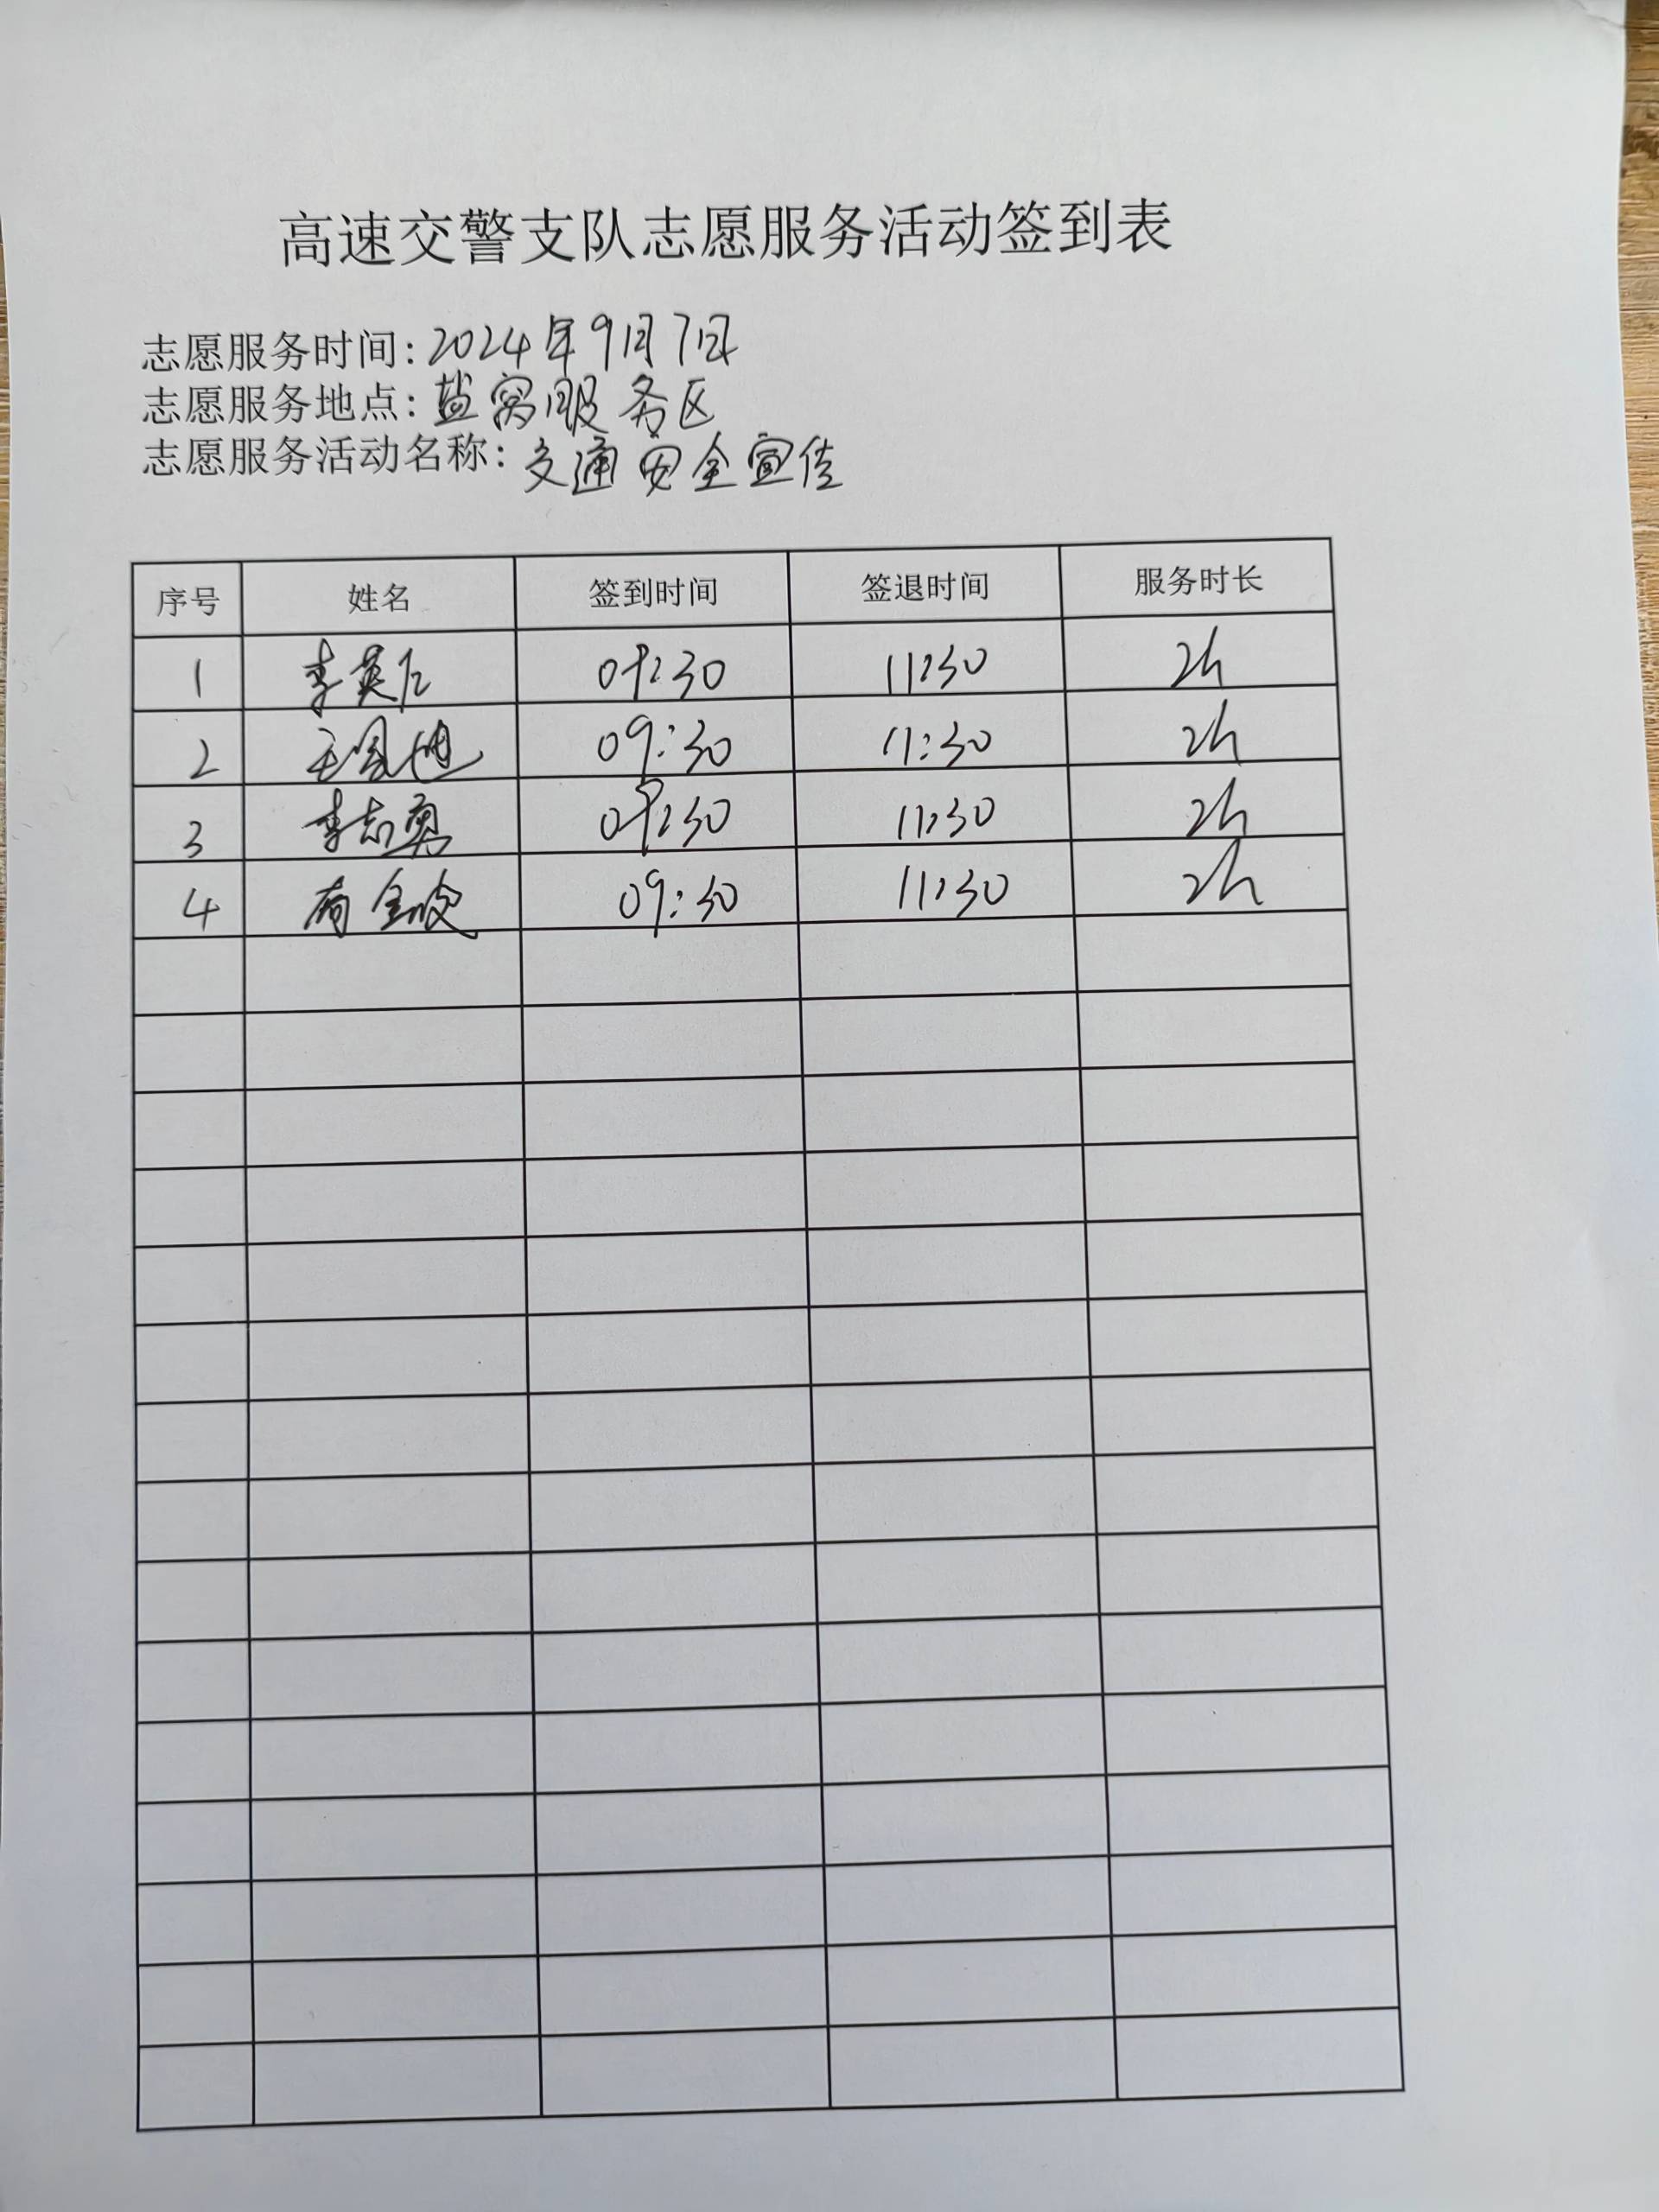 高速交警支队志愿服务活动签到表
志愿服务时间：2024年9月7日
志愿服务地点：盐窝服务区
志愿服务活动名称：交通安全宣传
序号 姓名 签到时间 签退时间 服务时长
1 李英 09:30 11:30 2h
2 09:30 11:30 2h
3 李志勇 09:30 11:30 2h
4 09:30 11:30 2h